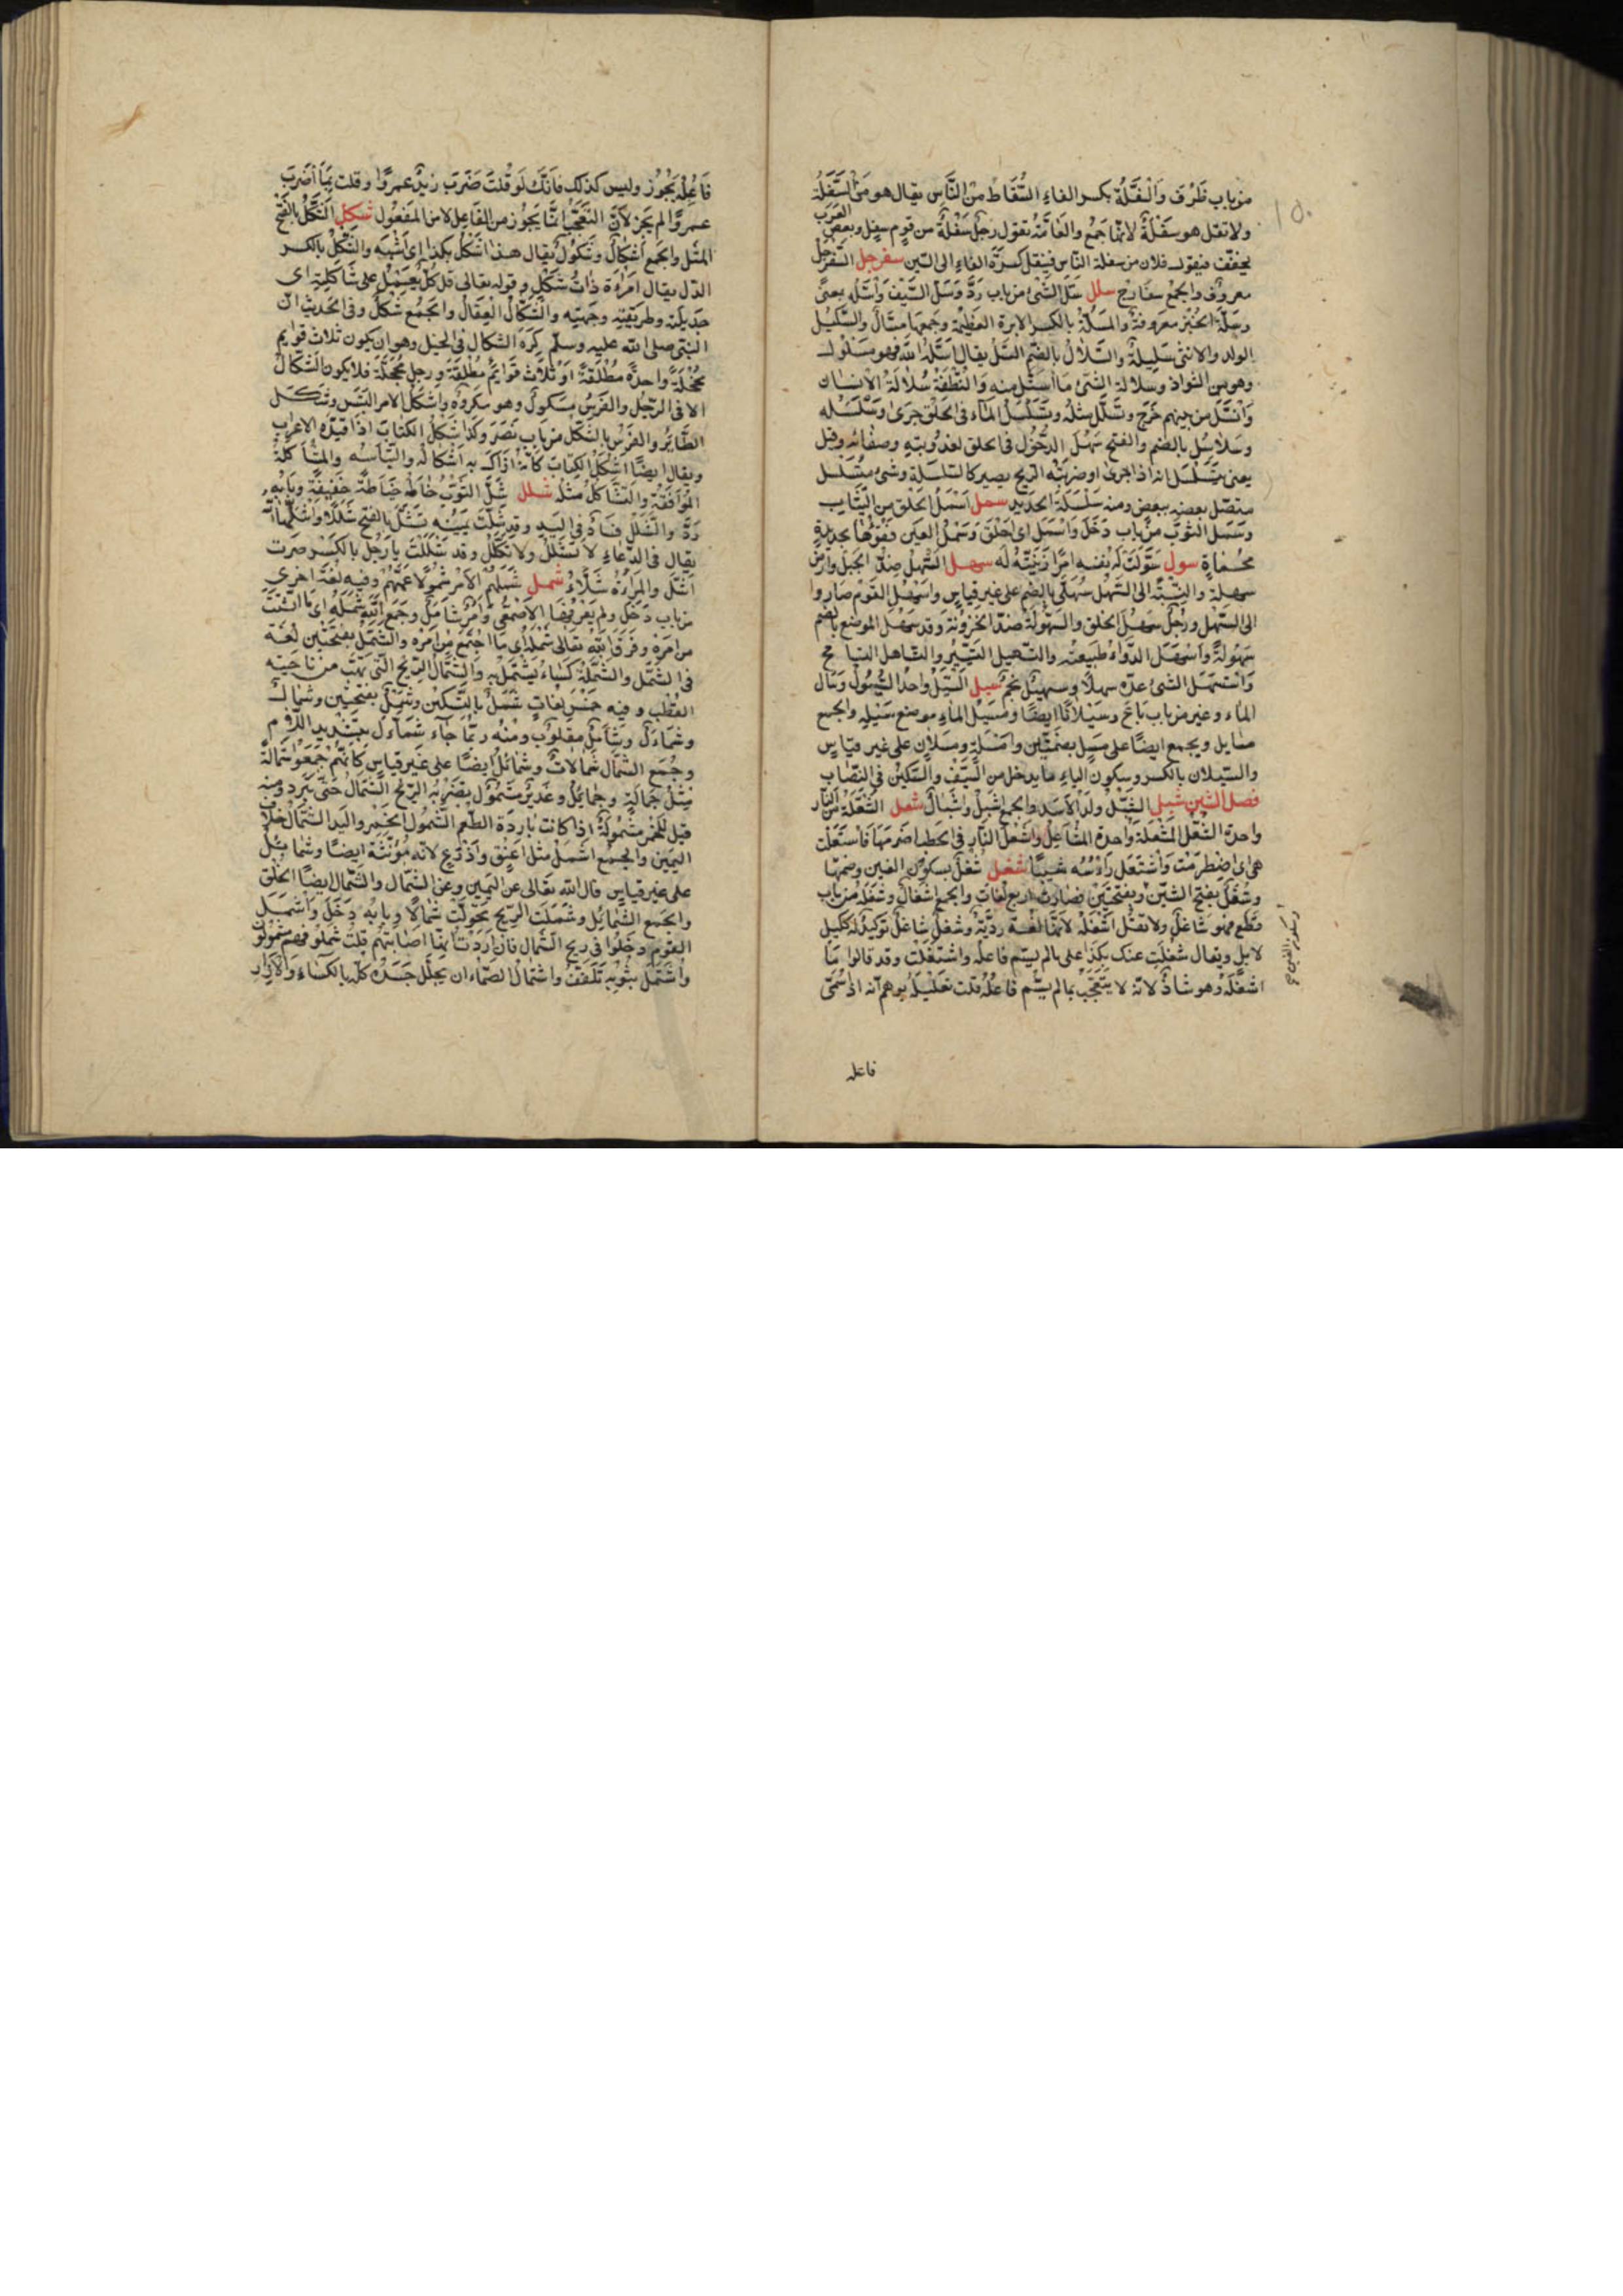 من باب ظَرُفَ والسَّفِلَةُ بكسر الفاءِ السُّقَاطُ من النَّاسِ يقال هو من السَّفِلَةِ
ولا تقل هو سَفِلَةٌ لانّها جَمْع والعَامَّةُ تقول رجلٌ سَفِلَةٌ من قومٍ سفلٍ وبعض العَرَب
يخفّف فيقول فلان من سفلة النّاس فينقل كسرَةَ الفاءِ الى السّين سفرجل السَّفَرْجَلُ
معروف والجمع سفارج سلل سَلَّ الشّئ من باب رَدَّ وسَلَّ السَّيْفَ وأسَلَّهُ بمعنًى
وسَلَّةُ الخُبْزِ معروفة والمِسَلَّةُ بالكسر الابرة العظيمة وجمعها مَسَالُّ والسَّلِيلُ
الولد والانثى سَلِيلَةٌ والسُّلَالُ بالضّم السِّلُّ يقال اسَلَّهُ اللّه فهو مسلول
وهو من الشّواذ وسلالة الشّئ ما استُلَّ منه والنُّطْفَةُ سُلَالَةُ الانسان
وانْسَلَّ من بينهم خَرَجَ وتَسَلَّلَ مثله وتَسَلْسَلَ المَاء فى الحَلْق جرى وسَلْسَلَه
وسلاسل بالضم والفتح سَهْل الدُّخُول فى الحلق لعذوبته وصفائه وقيل
يعنى يتسلسل انّه اذا جرى او ضربته الريح يصير كالسلسلة وشئ مُسَلْسَل
متصل بعضه ببعض ومنه سلسلة الحديد سمل أسْمَلُ الخَلَق من الثّياب
وسَمَلَ الثّوبُ من باب دَخَلَ وأسْمَلَ اى اخْلَقَ وسَمْلُ العين فَقْؤُها بحديدةٍ
محماةٍ سول سَوَّلَتْ له نفسه امرًا زَيَّنَتْهُ له سهل السَّهْلُ ضدّ الجبل وارض
سهلة والنِّسْبَةُ الى السَّهْل سُهْلِىٌّ بالضم على غير قياس واسْهَلَ القوم صاروا
الى السَّهْل ورجل سَهْلُ الخلق والسُّهُولَةُ ضدّ الحُزُونَة وقد سَهُلَ الموضع بالضم
سهولةً واسْهَلَ الدّواءُ طبيعته والتّسهيل التَّيسير والتّساهل التسامح
واسْتَسْهَلَ الشئ عدّه سهلًا وسهيلٌ نجم سيل السَّيْلُ واحد السُّيُول وسَال
الماء وغيره من باب بَاعَ وسَيَلَانًا ايضًا ومَسِيلُ الماءِ موضع سَيْلِهِ والجمع
مسايل ويجمع ايضًا على مُسُلٍ بضمّتين وامسلةٍ ومسلان على غير قياس
والسّيلان بالكسر وسكون الياءِ ما يدخل من السَّيف والسّكين فى النّصاب
فصل الشين شبل الشِّبْلُ ولد الاسد والجمع اشبل واشبال شعل الشُّعْلَةُ من النّار
واحدة الشُّعَل المَشْعَلَة واحدة المَشَاعِل واشْعَلَ النّار فى الحطب اضرمها فاشتعلت
هى اى اضطرمت واشتعل رأسه شيبًا شغل شُغْلٌ بسكون الغين وضمّها
وشَغَلٌ بفتح الشّين وبفتحتين فصارت اربع لغات والجمع اشغال وشَغَلَهُ من باب
قطع فهو شاغل ولا تقل اشْغَلَهُ لانّها لغة رديّة وشغل شاغل توكيد له كليل
لايل ويقال شُغِلت عنك بكذا على ما لم يسمّ فاعله واشتغلت وقد قالوا ما
اشغله وهو شاذّ لانّه لا يتعجّب بما لم يسمّ فاعلُه قلت تعليله يوهم انّه اذا سُمّى
فاعله
فَاعِلُهُ يَجُوز وليس كذلك فانّك لو قلت ضَرَبَ زيدٌ عمرًا وقلت ما أضْرَبَ
عمرًا لم يجز لانّ التّعجّب انّما يجوز من الفاعل لا من المفعول شكل الشَّكْلُ بالفتح
المثل والجمع اشكال وشكول يقال هذا اشكل بكذا اى اشبه والشِّكْلُ بالكسر
الدّل يقال امرأة ذات شكل وقوله تعالى قل كلّ يعمل على شاكلته اى
جديلته وطريقته وجهته والشِّكَالُ العِقَالُ والجمع شكل وفى الحديث انّ
النبىّ صلى اللّه عليه وسلّم كره الشكال فى الخيل وهو ان يكون ثلاث قوايم
محجّلة واحدة مطلقة او ثلاث قوايم مطلقة ورجل محجّلة فلا يكون الشكال
الا فى الرّجل والفرس مشكول وهو مكروه واشكل الامر التبس وشكل
الطّائر والفرس بالشكل من باب نَصَرَ وكذا شكل الكتاب اذا قيّده الاعراب
ويقال ايضًا اشكل الكتاب كانّه ازال به اشكاله والتباسه والمشاكلة
الموافقة والتّشاكل مثله شلل شَلَّ الثوبَ خاطه خياطة خفيفة وبابه
رَدَّ والشّلل فساد فى اليد وقد شلّت يمينه تشلّ بالفتح شللًا واشلّها اللّه
يقال فى الدّعاء لا تشلل ولا تكلل وقد شَلِلْتَ يا رجل بالكسر صرت
اشلّ والمرأة شلّاء شمل شَمِلَهُم الامر شمولًا عمّهم وفيه لغة اخرى
من باب دخل ولم يعرفها الاصمعى وامر شامل وجمع اللّه شمله اى ما تشتّت
من امره وفرّق اللّه تعالى شمله اى ما اجتمع من امره والشَّمَل بفتحتين لغة
فى الشّمل والشّملة كساء يشتمل به والشّمال الريح التى تهبّ من ناحية
القطب وفيه خمس لغات شَمْل بالتّسكين وشَمَل بفتحتين وشمال
وشمأل وشأمل مقلوب ومنه ربّما جاء شمألّ بتشديد اللّام
وجمع الشمال شمالات وشمائل ايضًا على غير قياس كانّهم جمعوا شمالة
مثل حمالة وحمايل وغدير مشمول تضربه الريح الشمال حتى تبرد ومنه
قيل للخمر مشمولة اذا كانت باردة الطّعم الشّمول الخمر واليد الشمال خلاف
اليمين والجمع اشمل مثل اعنق واذرع لانّه مؤنثة ايضًا وشمائل
على غير قياس قال اللّه تعالى عن اليمين وعن الشّمال والشّمال ايضًا الخلق
والجمع الشمائل وشملت الريح تحوّلت شمالًا وبابه دخل واشمل
القوم دخلوا فى ريح الشّمال فان اردت انّها اصابتهم قلت شملوا فهم مشمولون
واشتمل بثوبه تلفّف واشتمال الصمّاء ان يجلّل جسده كلّه بالكساء والازار